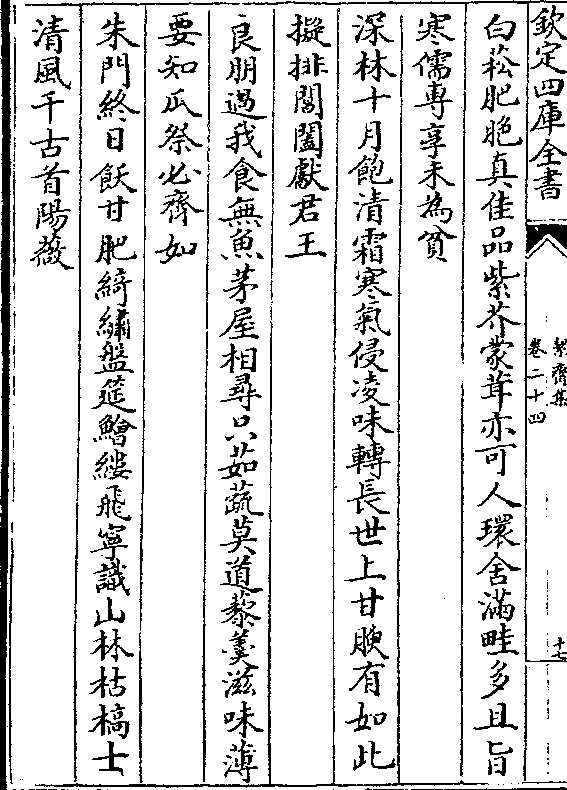 欽定四庫全書
絜齋集
卷二十四
十七
白菘肥脆真佳品紫芥蒙茸亦可人環舍滿畦多且旨
寒儒專享未為貧
深林十月飽清霜寒氣侵凌味轉長世上甘腴有如此
擬排閶闔獻君王
良朋過我食無魚茅屋相尋只茹蔬莫道藜羮滋味薄
要知瓜祭必齊如
朱門終日飫甘肥綺繡盤筵鱠縷飛寧識山林枯槁士
清風千古首陽薇